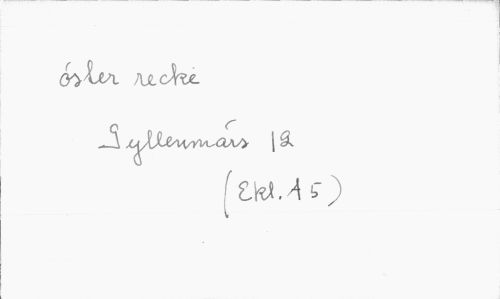 öster recke
Gyllenmärs 12
(Ekl. A 5)